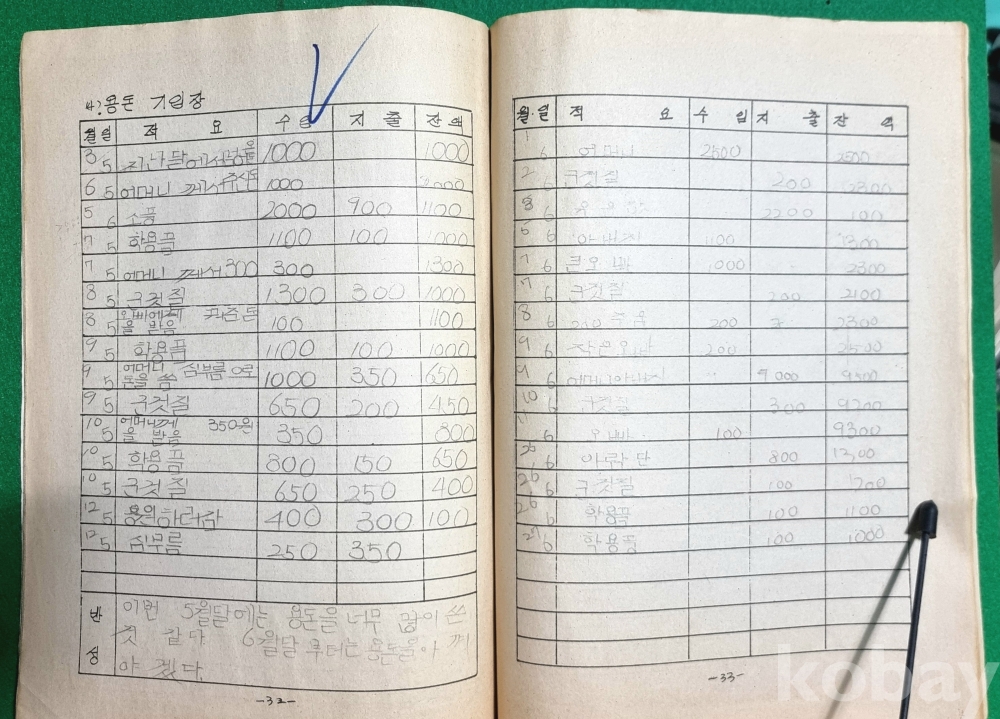 4). 용돈 기입장
월 일 적 요 수 입 지 출 잔 액
3 5 지난달에서 1000 1000
6 5 어머니 께서 주신돈 1000
5 6 소풍 2000 900 1100
7 5 학용품 1100 100 1000
7 5 어머니 께서 300 300 1300
8 5 군것질 1300 300 1000
8 5 오빠에게 꿔준돈
을 받음 100 1100
9 5 학용품 1100 100 1000
9 5 어머니 심부름으로
돈을 씀 1000 350 650
9 5 군것질 650 200 450
10 5 어머니께 350원
을 받음 350 800
10 5 학용품 800 150 650
10 5 군것 질 650 250 400
12 5 400 300 100
12 5 심부름 250 350
반 성
이번 5월달에는 용돈을 너무 많이 쓴
것 같다 6월달 부터는 용돈을 아 껴
야 겠다.
-32-
월 일 적 요 수 입 지 출 잔 액
1 6 어머니 2500 2500
2 6 군것질 200 2300
8 6 2200 100
5 6 아버지 1300
7 6 큰오빠 1000 2300
7 6 군것질 200 2100
8 6 200 2300
9 6 작은오빠 200 2500
9 6 어머니아버지 7000 9500
10 6 군것질 300 9200
6 오빠 100 9300
6 800
26 6 군것질 100 700
26 6 학용품 100 1100
27 6 학용품 100 1000
-33-
kobay